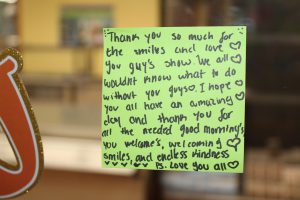 Thank you so much for
the smiles and love ♡
you guy's show. We all ♡
wouldn't know what to do
without you guys♡. I hope ♡
you all have an amazing
day and thank you for
all the needed good morning's,
you welcome's, welcoming
smiles, and endless kindness
P.S. Love you all ♡